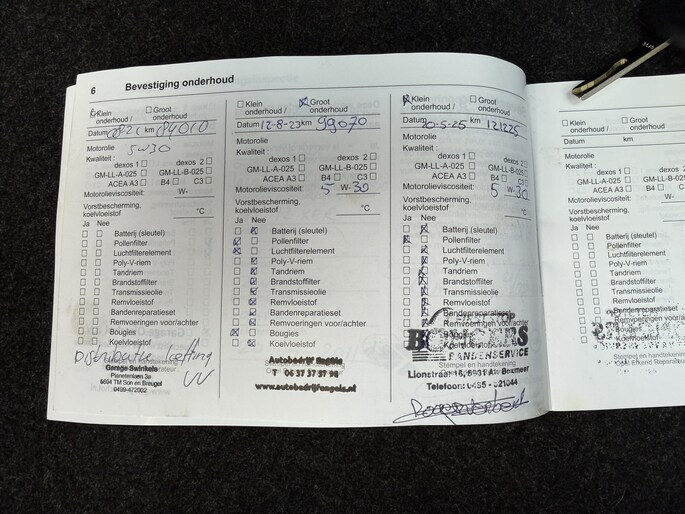 6 Bevestiging onderhoud
Klein onderhoud / Groot onderhoud
Datum 0821 km 84010
Motorolie 5W30
Kwaliteit :
dexos 1 dexos 2
GM-LL-A-025 GM-LL-B-025
ACEA A3 B4 C3
Motorolieviscositeit: W-
Vorstbescherming, koelvloeistof °C
Ja Nee
Batterij (sleutel)
Pollenfilter
Luchtfilterelement
Poly-V-riem
Tandriem
Brandstoffilter
Transmissieolie
Remvloeistof
Bandenreparatieset
Remvoeringen voor/achter
Bougies
Koelvloeistof
Distributie
Garage Swinkels
Planetenlaan 3a
5694 TM Son en Breugel
0499-472002
Klein onderhoud / Groot onderhoud
Datum 12-8-23 km 99070
Motorolie
Kwaliteit :
dexos 1 dexos 2
GM-LL-A-025 GM-LL-B-025
ACEA A3 B4 C3
Motorolieviscositeit: 5 W-30
Vorstbescherming, koelvloeistof °C
Ja Nee
Batterij (sleutel)
Pollenfilter
Luchtfilterelement
Poly-V-riem
Tandriem
Brandstoffilter
Transmissieolie
Remvloeistof
Bandenreparatieset
Remvoeringen voor/achter
Bougies
Koelvloeistof
Autobedrijf Engols
T 06 37 37 57 98
www.autobedrijfengols.nl
Klein onderhoud / Groot onderhoud
Datum 20-5-25 km 121225
Motorolie
Kwaliteit :
dexos 1 dexos 2
GM-LL-A-025 GM-LL-B-025
ACEA A3 B4 C3
Motorolieviscositeit: 5 W-30
Vorstbescherming, koelvloeistof °C
Ja Nee
Batterij (sleutel)
Pollenfilter
Luchtfilterelement
Poly-V-riem
Tandriem
Brandstoffilter
Transmissieolie
Remvloeistof
Bandenreparatieset
Remvoeringen voor/achter
Bougies
Koelvloeistof
BANDENSERVICE
Stempel en handtekening
Boxmeer
Telefoon: 0485 - 521044
Klein onderhoud / Groot onderhoud
Datum km
Motorolie
Kwaliteit :
dexos 1
GM-LL-A-025 GM-LL-B
ACEA A3 B4
Motorolieviscositeit: W-
Vorstbescherming, koelvloeistof
Ja Nee
Batterij (sleutel)
Pollenfilter
Luchtfilterelement
Poly-V-riem
Tandriem
Brandstoffilter
Transmissieolie
Remvloeistof
Bandenreparatieset
Remvoeringen voor
Stempel en handtekening